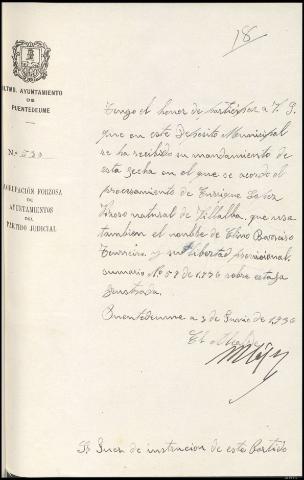 18
ILTMO. AYUNTAMIENTO
DE
PUENTEDEUME
N.º 530
AGRUPACIÓN FORZOSA
DE
AYUNTAMIENTOS
DEL
PARTIDO JUDICIAL
Tengo el honor de participar a V. S.
que en este Depósito Municipal
se ha recibido un mandamiento de
esta fecha en el que se acordó el
procesamiento de Enrique
natural de Villalba, que usa
tambien el nombre de
y su libertad provisional
sumario Nº 58 de 1936 sobre estafa
frustrada.
Puentedeume a 3 de Junio de 1936
El Alcalde
Sr Juez de instrucion de este Partido